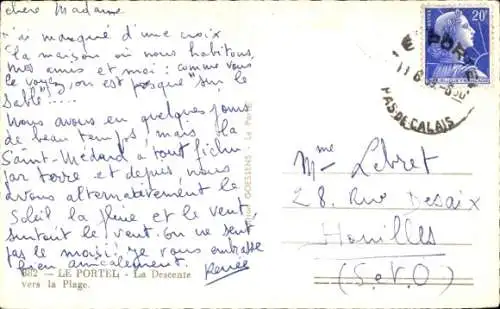 chère Madame
j'ai marqué d'une croix
la maison où nous habitons,
mes amis et moi: comme vous
le voyez, on est presque "sur le
sable".....
Nous avons eu quelques jours
de beau temps, mais la
Saint-Médard a tout fichu
par terre et depuis, nous
avons alternativement le
Soleil la pluie et le vent,
surtout le vent. on ne sent
pas le moisi: je vous embrasse
bien amicalement. Renée
LE PORTEL - La Descente
vers la Plage.
GOESSENS - Le Portel
20F
PAS DE CALAIS
Mme Lebret
28, Rue Desaix
Houilles
(S.et.O)